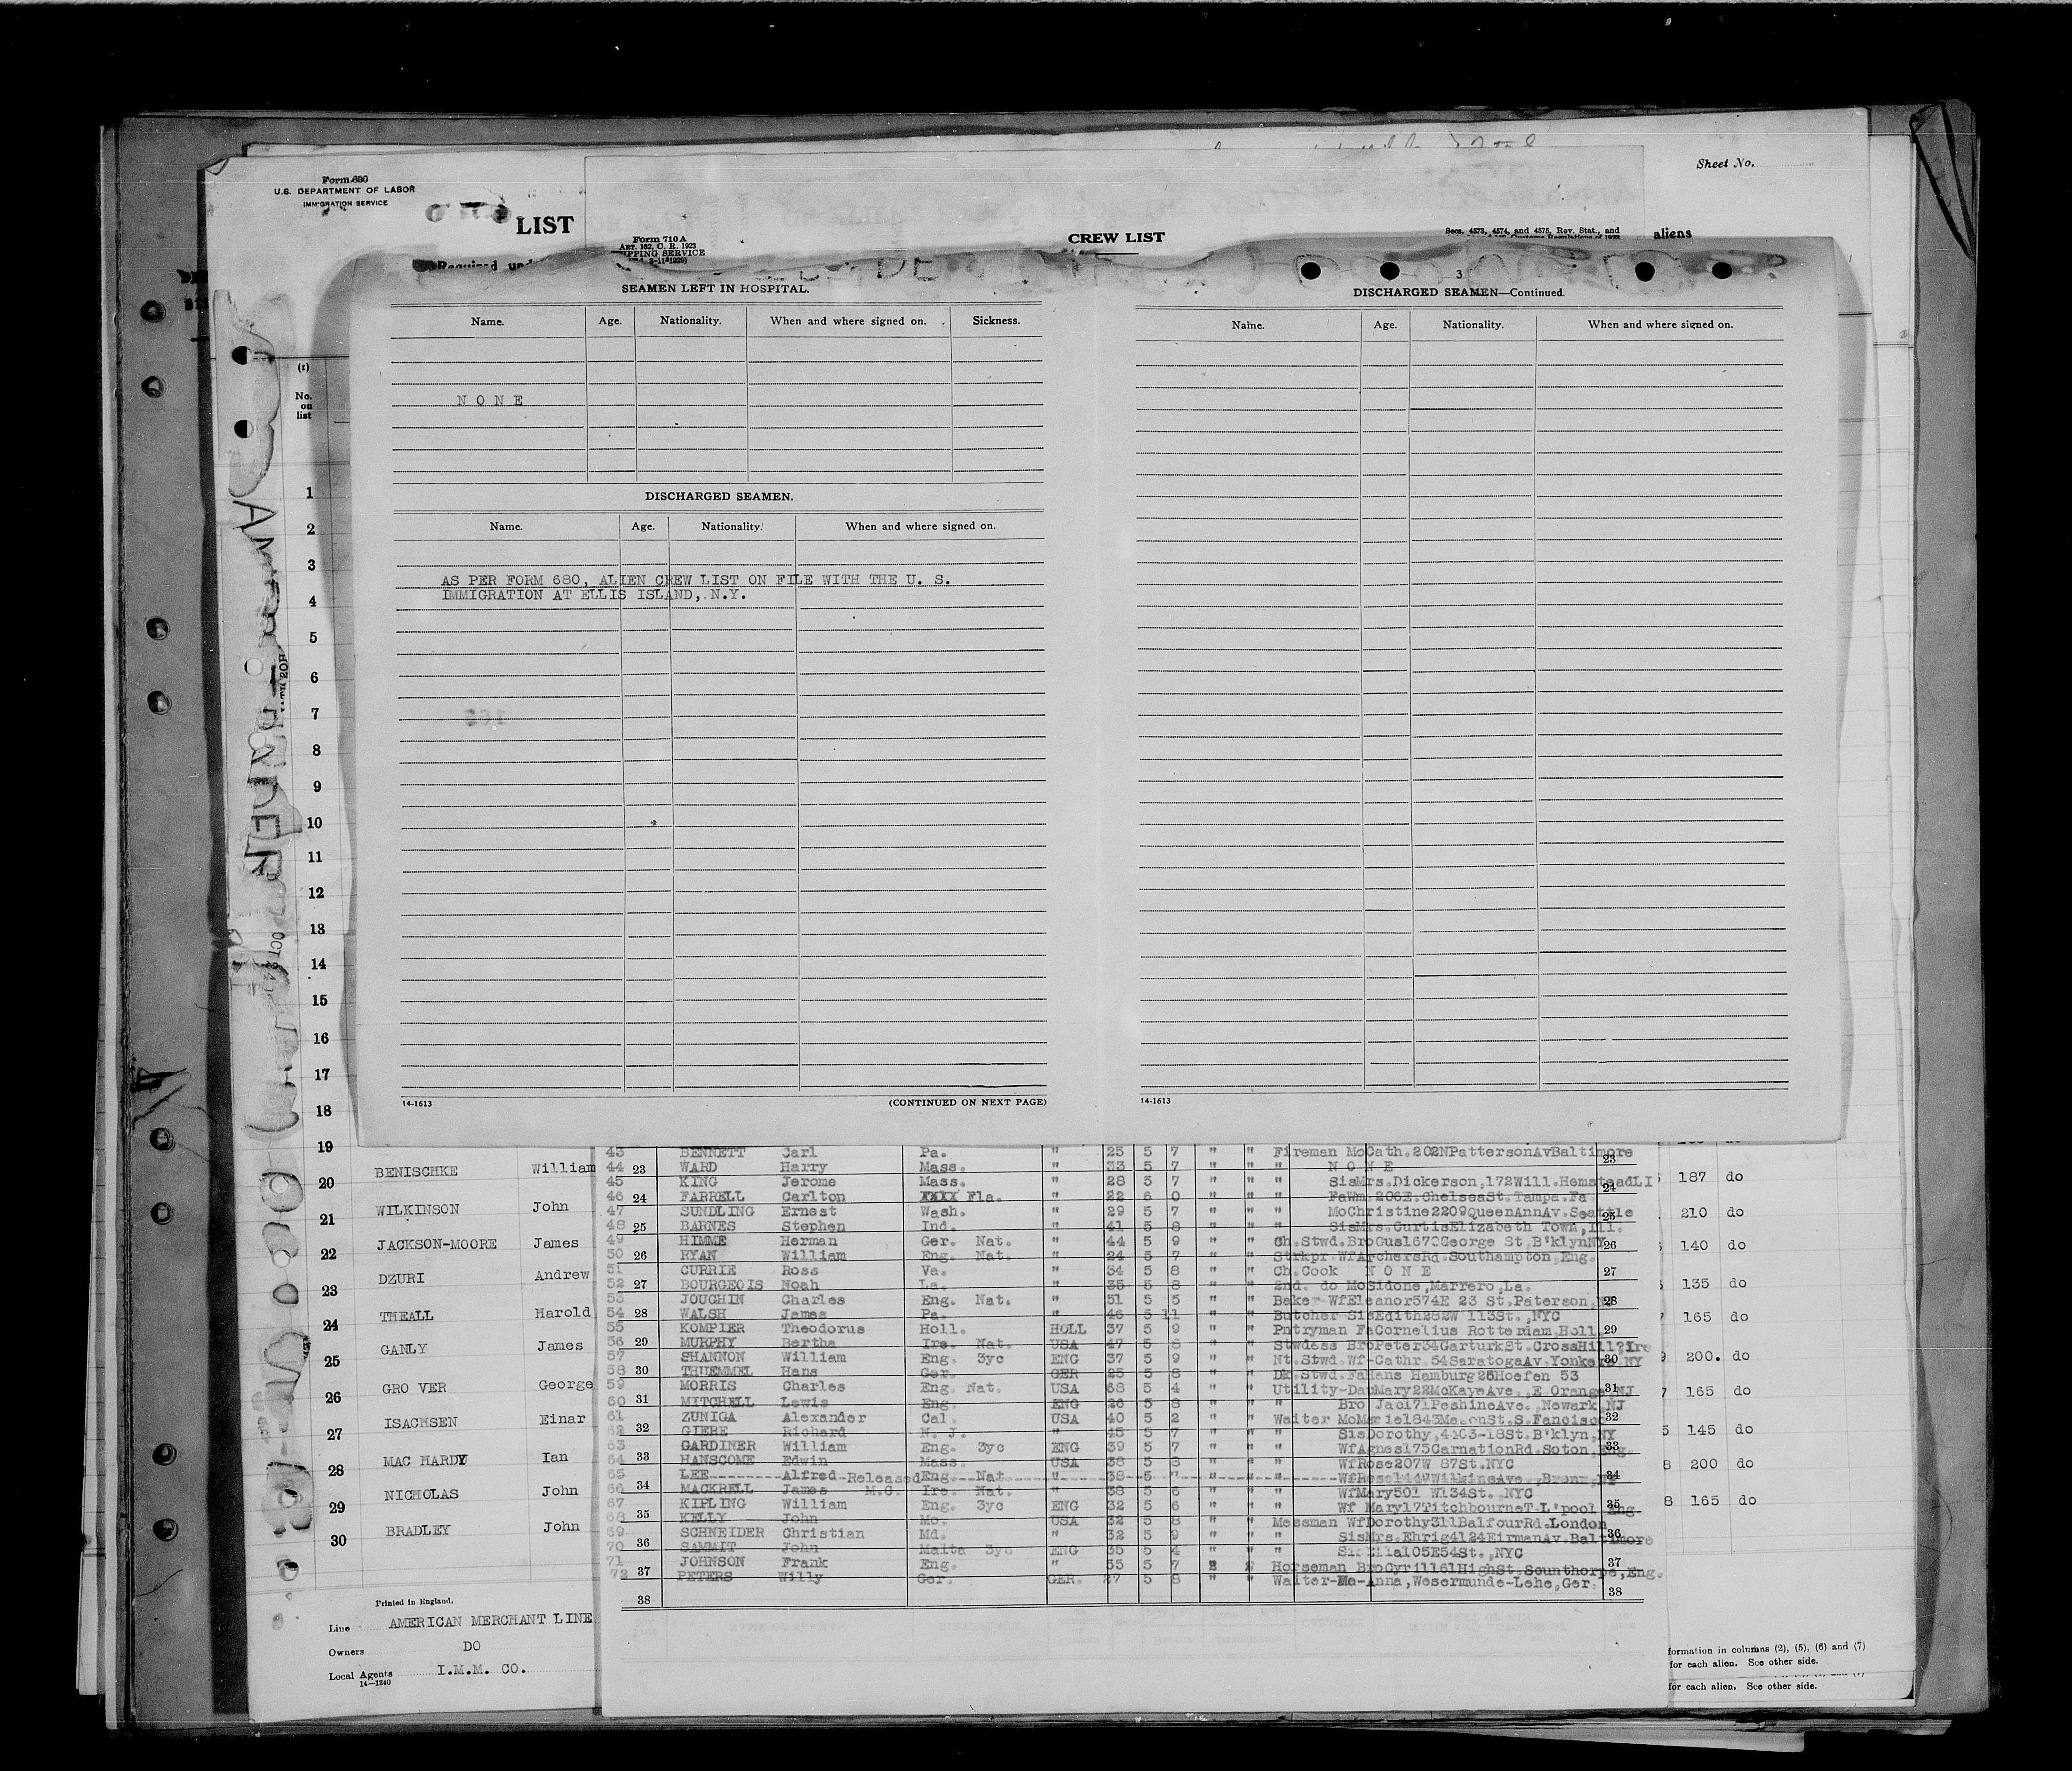 Sheet No.
Form 680
U.S. DEPARTMENT OF LABOR
IMMIGRATION SERVICE
LIST
Required under
Form 710A
ART. 162, C. R. 1923
CREW LIST
Secs. 4573, 4574, and 4575, Rev. Stat., and
aliens
(1)
No. on list
SEAMEN LEFT IN HOSPITAL.
Name. Age. Nationality. When and where signed on. Sickness.
N O N E
DISCHARGED SEAMEN.
Name. Age. Nationality. When and where signed on.
AS PER FORM 680, ALIEN CREW LIST ON FILE WITH THE U. S.
IMMIGRATION AT ELLIS ISLAND, N.Y.
14-1613 (CONTINUED ON NEXT PAGE)
3
DISCHARGED SEAMEN—Continued.
Name. Age. Nationality. When and where signed on.
14-1613
1
2
3
4
5
6
7
8
9
10
11
12
13
14
15
16
17
18
19
20 BENISCHKE William
21 WILKINSON John
22 JACKSON-MOORE James
23 DZURI Andrew
24 THEALL Harold
25 GANLY James
26 GROVER George
27 ISACHSEN Einar
28 MAC HARDY Ian
29 NICHOLAS John
30 BRADLEY John
43 BENNETT Carl Pa. " 25 5 7 " " Fireman MoCath.202NPattersonAvBaltimore
44 23 WARD Harry Mass. " 33 5 7 " " " N O N E 23
45 KING Jerome Mass. " 28 5 7 " " " SisMrs.Dickerson,172Will.HemsteadLI
46 24 FARRELL Carlton XXXX Fla. " 22 6 0 " " " FaWm.206E.ChelseaSt.Tampa.Fa. 24
47 SUNDLING Ernest Wash. " 29 5 7 " " " MoChristine2209QueenAnnAv.Seattle
48 25 BARNES Stephen Ind. " 41 5 8 " " " SisMrs.CurtisElizabeth Town,Ill. 25
49 HIMME Herman Ger. Nat. " 44 5 9 " " Ch.Stwd.BroGus1670George St.B'klynNY
50 26 RYAN William Eng. Nat. " 24 5 7 " " Strkpr.WfArchersRd.Southampton,Eng. 26
51 CURRIE Ross Va. " 34 5 8 " " Ch.Cook N O N E
52 27 BOURGEOIS Noah La. " 35 5 8 " " 2nd. do MoSidone,Marrero,La. 27
53 JOUGHIN Charles Eng. Nat. " 51 5 5 " " Baker WfEleanor574E 23 St.Paterson,
54 28 WALSH James Pa. " 46 5 11 " " Butcher SisEdith282W 113St.,NYC 28
55 KOMPIER Theodorus Holl. HOLL 37 5 9 " " Pntryman FaCornelius Rotterdam,Holl
56 29 MURPHY Bertha Ire. Nat. USA 47 5 8 " " Stwdess BroPeter34GarturkSt.CrossHill?Ire 29
57 SHANNON William Eng. 3yc ENG 37 5 9 " " Nt.Stwd.Wf-Cathr.54SaratogaAv.Yonkers,NY
58 30 THUEMMEL Hans Ger. GER 25 5 8 " " Dk.Stwd.FaHans Hamburg26Hoefen 53 30
59 MORRIS Charles Eng. Nat. USA 68 5 4 " " Utility-DauMary22McKayeAve.,E.Orange,NJ
60 31 MITCHELL Lewis Eng. ENG 26 5 8 " " " Bro Jac171PeshineAve. Newark,NJ 31
61 ZUNIGA Alexander Cal. USA 40 5 2 " " Waiter
62 32 GIERE Richard N. J. " 45 5 7 " " " SisDorothy,4403-18St.B'klyn,NY 32
63 GARDINER William Eng. 3yc ENG 39 5 7 " " " WfAgnes175CarnationRd.Soton,Eng.
64 33 HANSCOME Edwin Mass. USA 38 5 8 " " " WfRose207W 87St.NYC 33
65 LEE--------Alfred-Released Eng. Nat. " 38 5 7 " " "
66 34 MACKRELL James M.C. Ire. Nat. " 38 5 6 " " " WfMary501 W134St. NYC 34
67 KIPLING William Eng. 3yc ENG 32 5 6 " " " Wf Mary17TitchbourneT.L'pool Eng
68 35 KELLY John Mo. USA 32 5 8 " " Messman WfDorothy311BalfourRd.London 35
69 SCHNEIDER Christian Md. " 32 5 9 " " " SisMrs.Ehrig4124EirmanAv.Baltimore
70 36 SAMMIT John Malta 3yc ENG 35 5 4 " " " 36
71 JOHNSON Frank Eng. " 55 5 7 " " Horseman BroCyril161HighSt.Scunthorpe,Eng.
72 37 PETERS Willy Ger. GER. 27 5 8 " " Waiter-Ma-Anna,Wesermunde-Lehe,Ger. 37
38 38
187 do
210 do
140 do
135 do
165 do
200. do
165 do
145 do
200 do
165 do
Printed in England.
Line AMERICAN MERCHANT LINE
Owners DO
Local Agents I.M.M. CO.
14-1240
formation in columns (2), (5), (6) and (7)
for each alien. See other side.
for each alien. See other side.